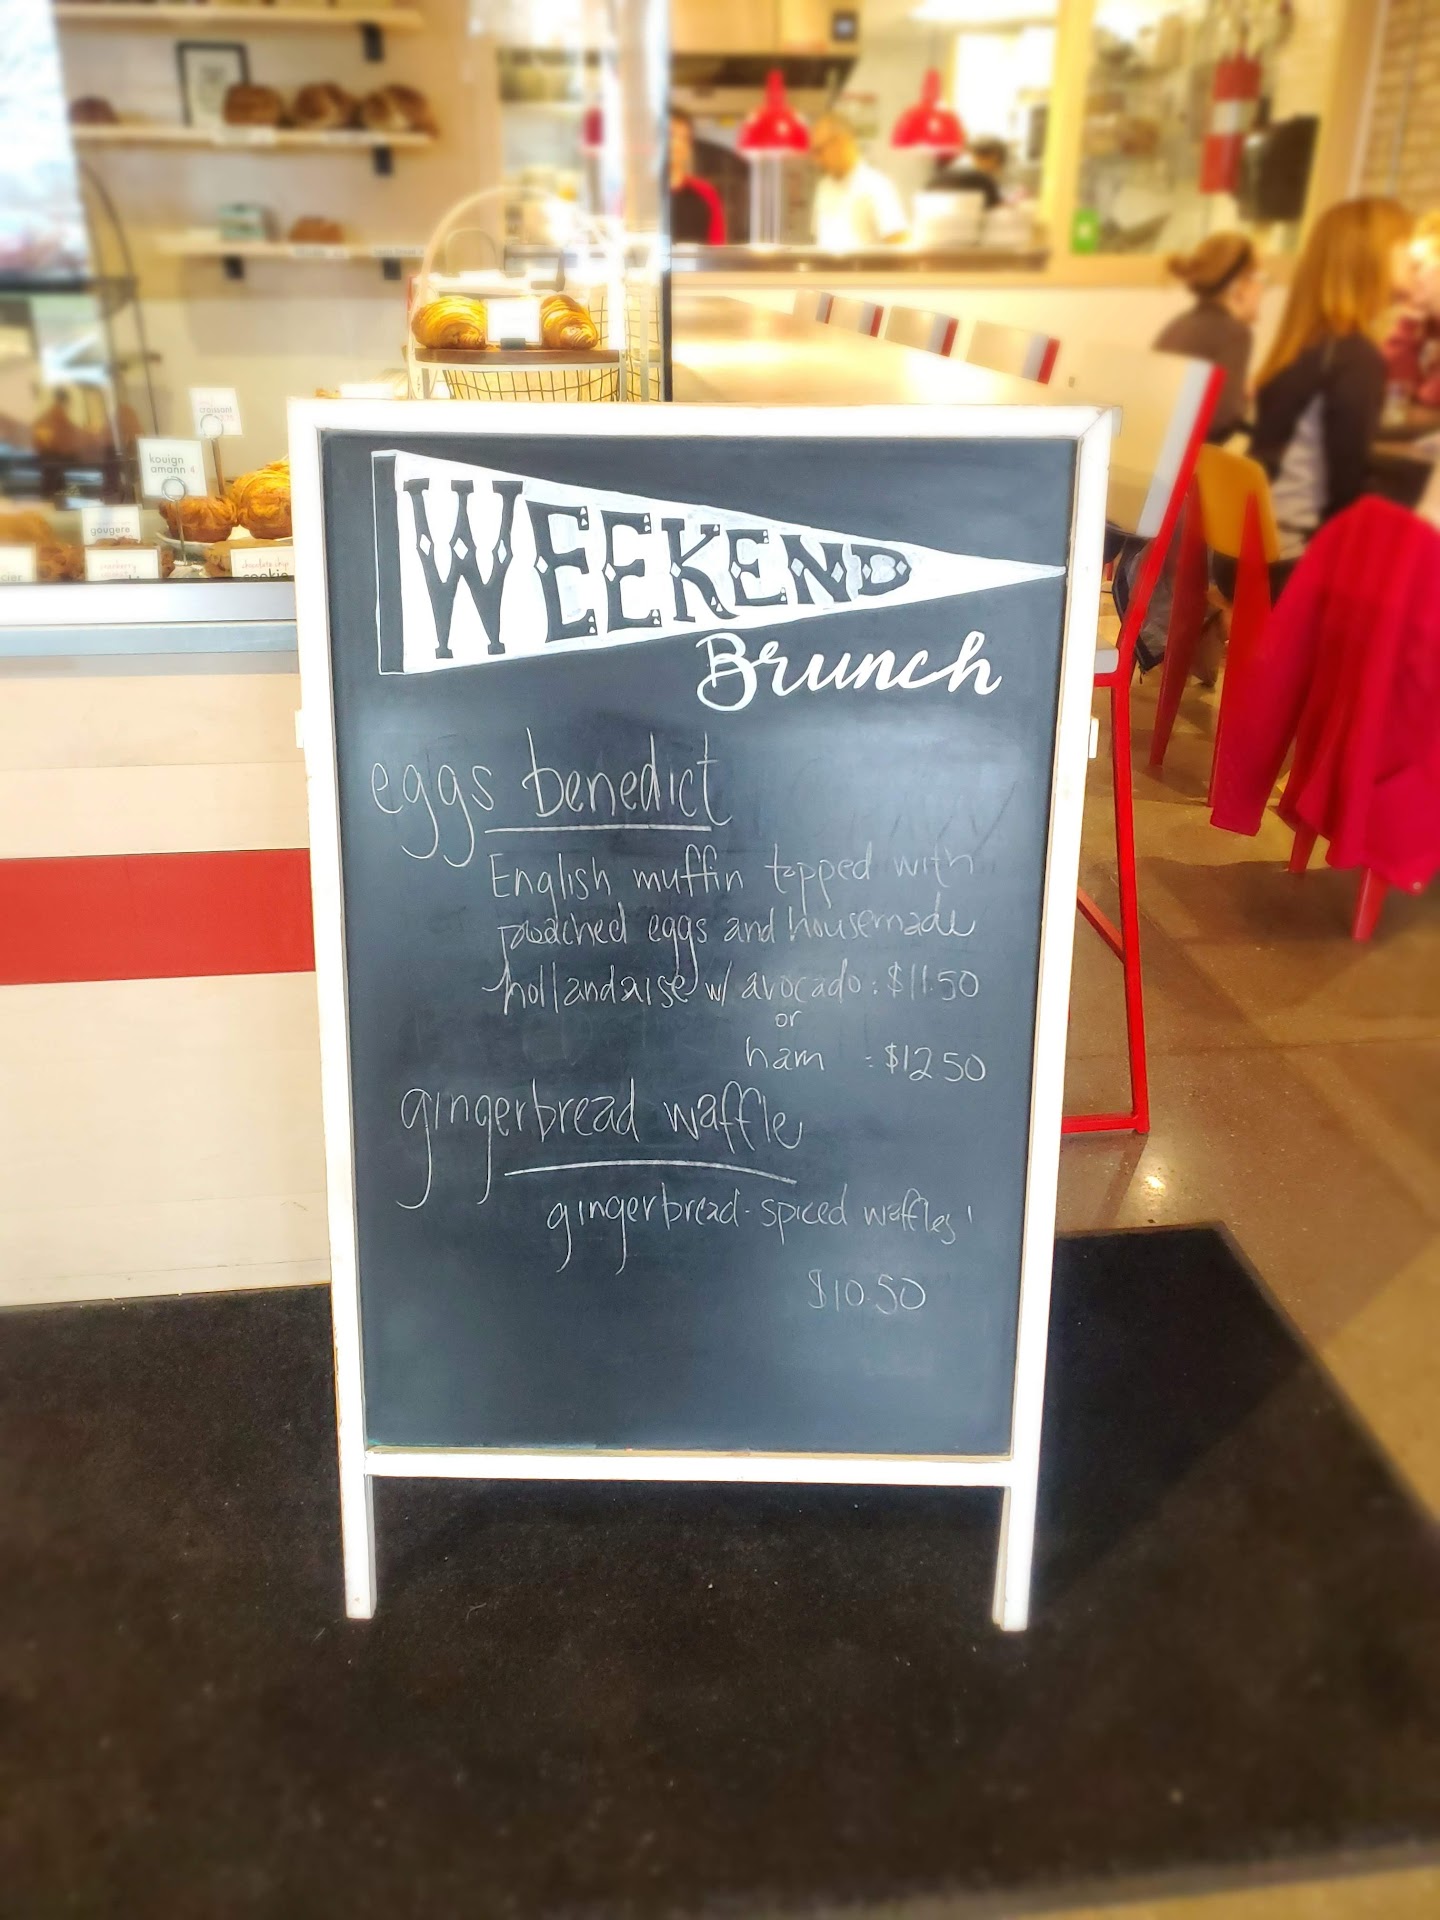 WEEKEND
Brunch
eggs benedict
English muffin topped with
poached eggs and housemade
hollandaise w/ avocado: $11.50
or
ham : $12.50
gingerbread waffle
gingerbread-spiced waffles!
$10.50
croissant
kouign
amann 4
gougere
chocolate chip
cookie